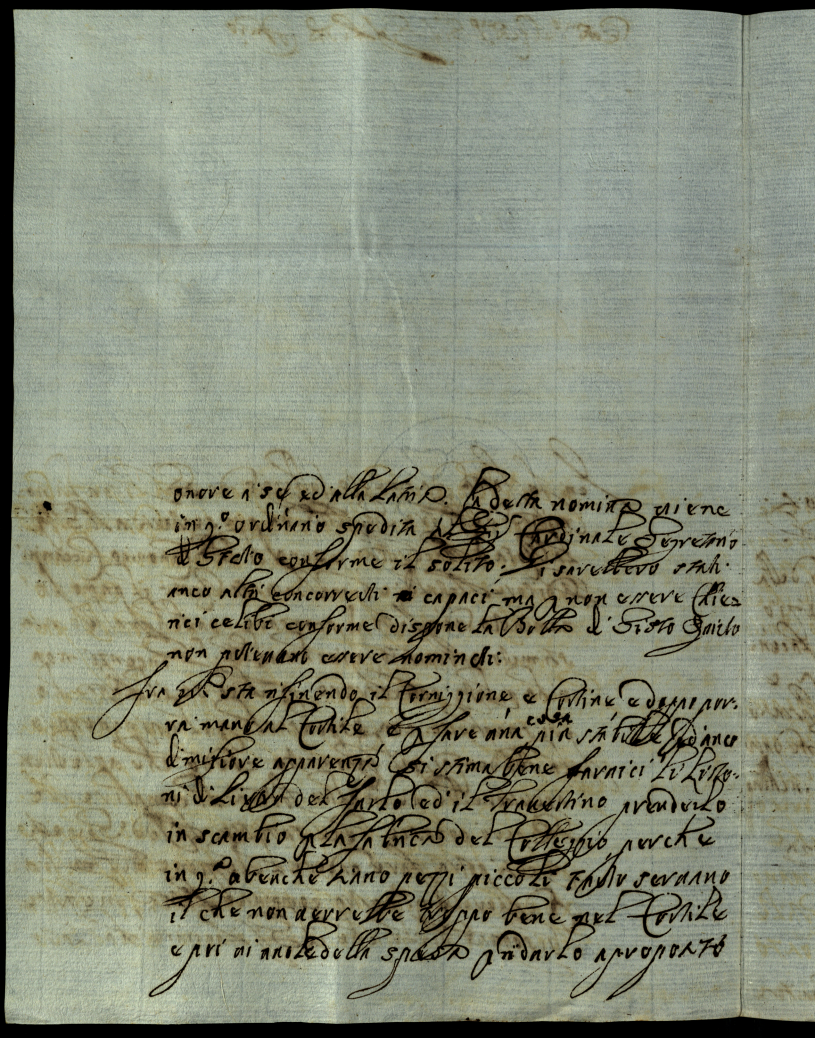 onore a se ed alla Patria. La detta nomina viene
in q.o ordinario spedita al Sig.r Cardinale Segretario
di Stato conforme il solito. Vi sarebbero stati
anco altri concorrenti capaci ma p non essere Chie=
rici celibi conforme dispone la Bolla di Sisto Quinto
non potevano essere nominati:
Fra P. sta rifinendo il Cornicione e Cortine e doppo por=
rà mano al Cortile e p fare una cosa più stabile ed anco
di migliore apparenza si stima bene farvici li
ni di del ed il Travertino prenderlo
in scambio p la fabrica del Colleggio perche
in q.o abenche siano pezzi piccoli servano
il che non verrebbe troppo bene nel Cortile
e poi vi vuole della spesa p ridurlo a proposito